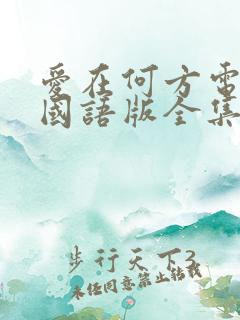 愛在何方電
國語版全集
步行天下3
未经同意禁止转载